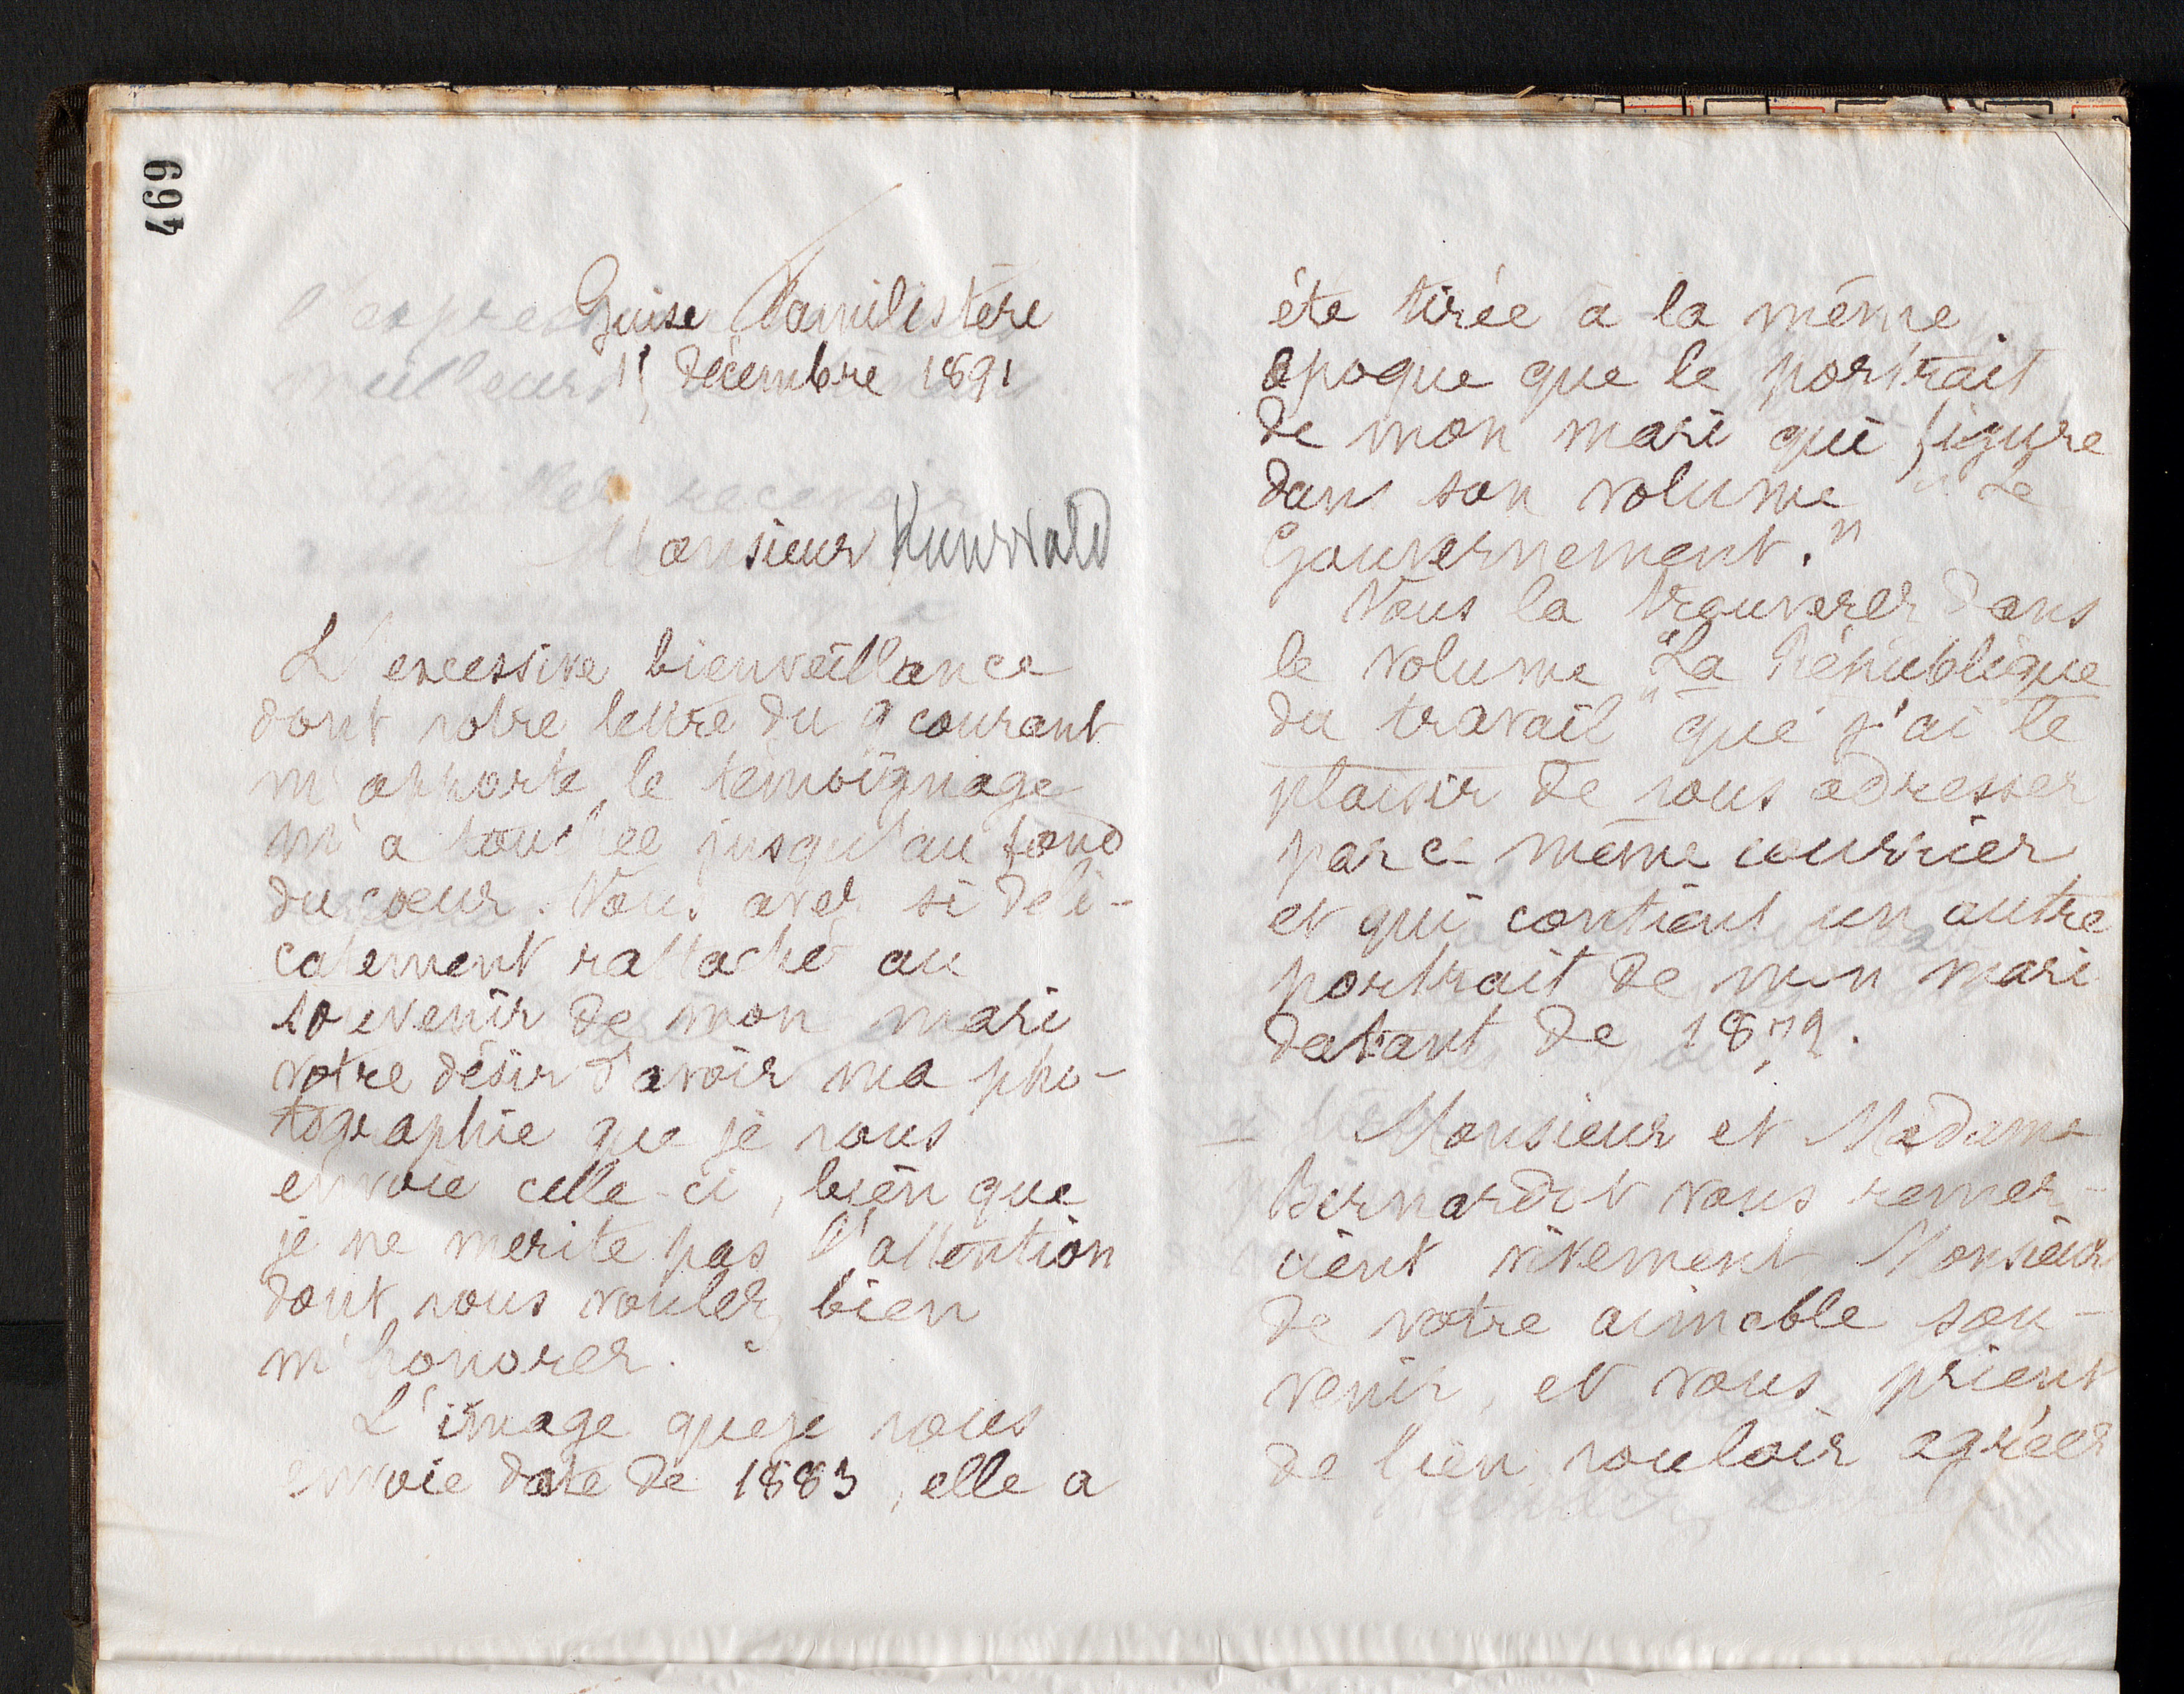 469
Guise Familistère
15 décembre 1891
Monsieur Kunwald
L'excessive bienveillance
dont votre lettre du 9 courant
m'apporte le témoignage
m'a touchée jusqu'au fond
du coeur. Vous avez si déli-
catement rattaché au
souvenir de mon mari
votre désir d'avoir ma pho-
tographie que je vous
envoie celle-ci, bien que
je ne mérite pas l'attention
dont vous voulez bien
m'honorer.
L'image que je vous
envoie date de 1883, elle a
été tirée à la même
époque que le portrait
de mon mari qui figure
dans son volume "Le
Gouvernement."
Vous la trouverez dans
le volume "La République
du travail" que j'ai le
plaisir de vous adresser
par ce même courrier
et qui contient un autre
portrait de mon mari
datant de 1872.
Monsieur et Madame
Bernardot vous remer-
cient vivement Monsieur
de votre aimable sou-
venir, et vous prient
de bien vouloir agréer